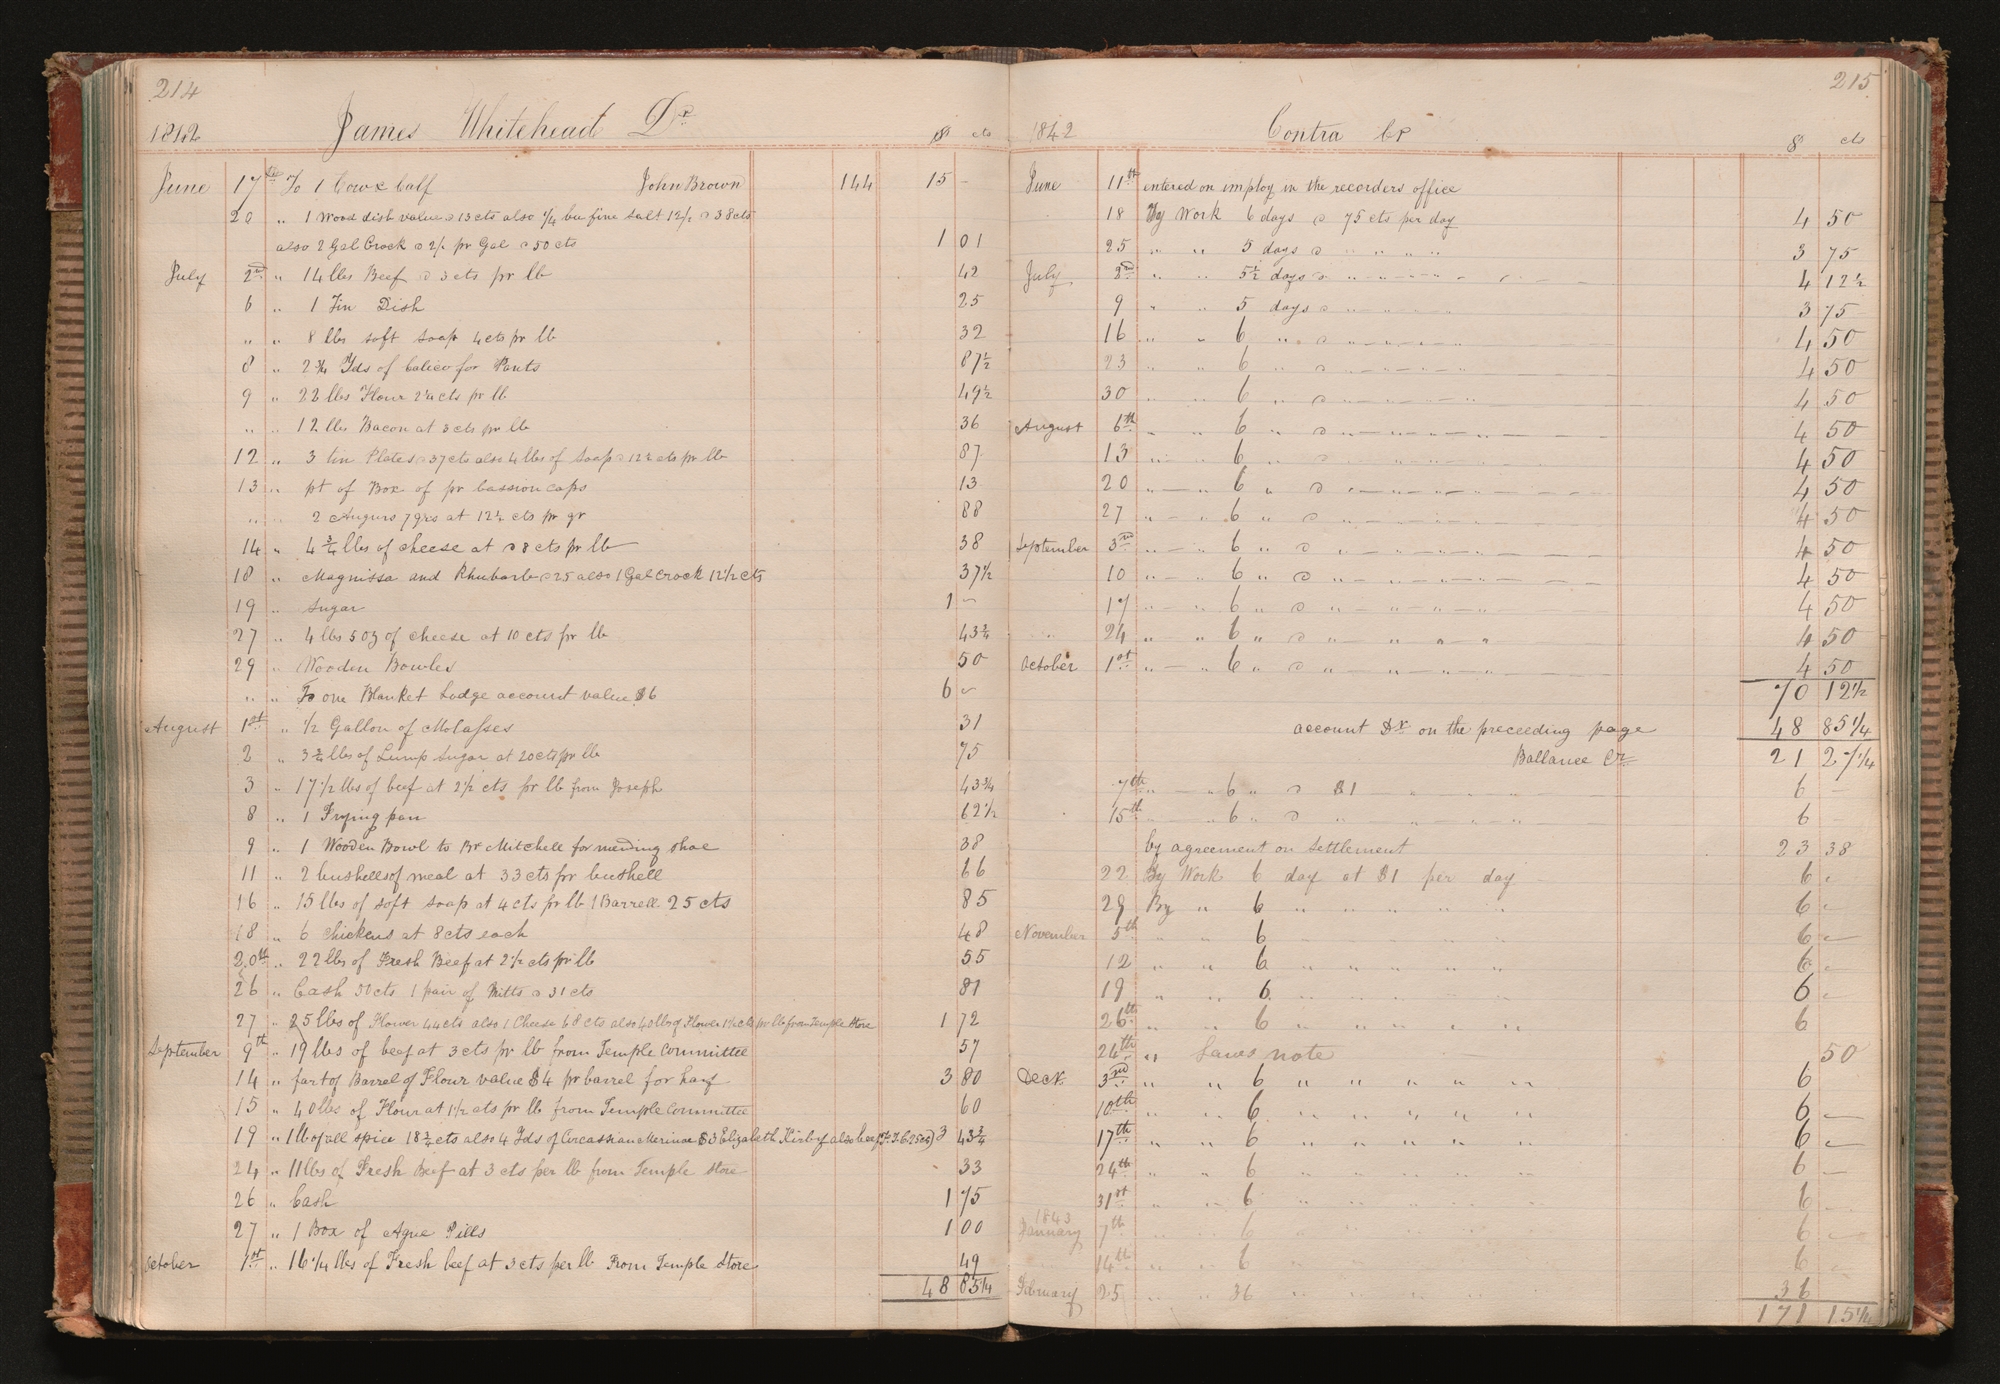 214
1842 James Whitehead Dr $ cts
June 17th To 1 Cow & Calf John Brown 144 15 –
20 " 1 Wood dish value @ 13cts also 1/4 bu fine salt 12 1/2 @ 38cts
also 2 Gal Crock @ 2/. pr Gal @ 50 cts 1 01
July 2nd " 14 lbs Beef @ 3 cts pr lb 42
6 " 1 Tin Dish 25
" " 8 lbs soft soap 4cts pr lb 32
8 " 2 3/4 Yds of Calico for Pants 87 1/2
9 " 22 lbs Flour 2 1/4 cts pr lb 49 1/2
" " 12 lbs Bacon at 3 cts pr lb 36
12 " 3 tin Plates @ 37cts also 4 lbs of Soap @ 12 1/2 cts pr lb 87
13 " pt of Box of pr cassion caps 13
" " 2 Augurs 7 qrs at 12 1/2 cts pr qr 88
14 " 4 3/4 lbs of cheese at @ 8 cts pr lb 38
18 " Magnissa and Rhubarb @ 25 also 1 Gal Crock 12 1/2 cts 37 1/2
19 " Sugar 1 –
27 " 4 lbs 5 oz of cheese at 10 cts pr lb 43 3/4
29 " Wooden Bowles 50
" " To one Blanket Lodge account value $6 6 –
August 1st " 1/2 Gallon of Molasses 31
2 " 3 3/4 lbs of Lump Sugar at 20cts pr lb 75
3 " 17 1/2 lbs of beef at 2 1/2 cts pr lb from Joseph 43 3/4
8 " 1 Frying pan 62 1/2
9 " 1 Wooden Bowl to Br Mitchell for mending shoe 38
11 " 2 bushells of meal at 33 cts pr bushell 66
16 " 15 lbs of soft soap at 4 cts pr lb 1 Barrell 25 cts 85
18 " 6 chickens at 8 cts each 48
20th " 22 lbs of Fresh Beef at 2 1/2 cts pr lb 55
26 " Cash 50 cts 1 pair of Mitts @ 31 cts 81
27 " 25 lbs of Flower 44cts also 1 Cheese 68 cts also 40 lbs of Flower 1 1/2 cts pr lb from Temple Store 1 72
September 9th " 19 lbs of beef at 3 cts pr lb from Temple Committee 57
14 " part of Barrel of Flour value $4 pr barrel for half 3 80
15 " 40 lbs of Flour at 1 1/2 cts pr lb from Temple Committee 60
19 " 1 lb of all spice 18 3/4 cts also 4 Yds of Circassian Merinoe $3 Elizabeth Kirby also 3 43 3/4
24 " 11 lbs of Fresh Beef at 3 cts per lb from Temple Store 33
26 " Cash 1 75
27 " 1 Box of Ague Pills 1 00
October 1st " 16 1/4 lbs of Fresh beef at 3 cts per lb From Temple Store 49
48 85 1/4
215
1842 Contra Cr $ cts
June 11th entered on imploy in the recorders office
18 By Work 6 days @ 75 cts per day 4 50
25 " " 5 days @ " " " " 3 75
July 2nd " " 5 1/2 days @ " " " " 4 12 1/2
9 " " 5 days @ " " " " 3 75
16 " " 6 " @ " " " " 4 50
23 " " 6 " @ " " " " 4 50
30 " " 6 " @ " " " " 4 50
August 6th " " 6 " @ " " " " 4 50
13 " " 6 " @ " " " " 4 50
20 " " 6 " @ " " " " 4 50
27 " " 6 " @ " " " " 4 50
September 3rd " " 6 " @ " " " " 4 50
10 " " 6 " @ " " " " 4 50
17 " " 6 " @ " " " " 4 50
" 24 " " 6 " @ " " " " 4 50
October 1st " " 6 " @ " " " " 4 50
70 12 1/2
account Dr on the preceeding page 48 85 1/4
Ballance Cr 21 27 1/4
7th " " 6 " @ $1 " " " 6 –
15th " " 6 " @ " " " " 6
by agreement on Settlement 23 38
22 By Work 6 day at $1 per day 6 –
29 By " 6 " " " " " 6 –
November 5th " " 6 " " " " " 6 –
12 " " 6 " " " " " 6 –
19 " " 6 " " " " " 6 –
26th " " 6 " " " " " 6
24th " Laws note 50
Decr 3rd " " 6 " " " " " 6
10th " " 6 " " " " " 6 –
17th " " 6 " " " " " 6 –
24th " " 6 " " " " " 6 –
31st " " 6 " " " " " 6
1843
January 7th " " 6 " " " " " 6 –
14th " " 6 " " " " " 6 –
February 25 " " 36 " " " " " 36
171 15 1/4